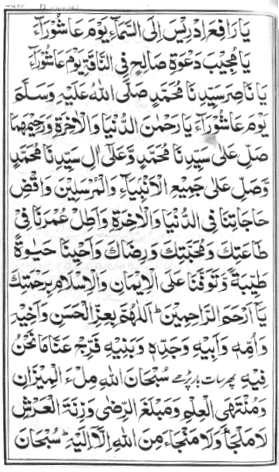 يَا رَافِعَ اِدْرِيْسَ اِلَى السَّمَآءِ يَوْمَ عَاشُوْرَآءَ
يَا مُجِيْبَ دَعْوَةِ صَالِحٍ فِي النَّاقَةِ يَوْمَ عَاشُوْرَآءَ
يَا نَاصِرَ سَيِّدِنَا مُحَمَّدٍ صَلَّى اللهُ عَلَيْهِ وَسَلَّمَ
يَوْمَ عَاشُوْرَآءَ يَا رَحْمٰنَ الدُّنْيَا وَالْاٰخِرَةِ وَرَحِيْمَهُمَا
صَلِّ عَلٰى سَيِّدِنَا مُحَمَّدٍ وَّعَلٰى اٰلِ سَيِّدِنَا مُحَمَّدٍ
وَّصَلِّ عَلٰى جَمِيْعِ الْاَنْبِيَآءِ وَالْمُرْسَلِيْنَ وَاقْضِ
حَاجَاتِنَا فِي الدُّنْيَا وَالْاٰخِرَةِ وَاَطِلْ عُمُرَنَا فِيْ
طَاعَتِكَ وَمَحَبَّتِكَ وَرِضَاكَ وَاَحْيِنَا حَيٰوةً
طَيِّبَةً وَّتَوَفَّنَا عَلَى الْاِيْمَانِ وَالْاِسْلَامِ بِرَحْمَتِكَ
يَا اَرْحَمَ الرَّاحِمِيْنَ ؕ اَللّٰهُمَّ بِعِزِّ الْحَسَنِ وَاَخِيْهِ
وَاُمِّهٖ وَاَبِيْهِ وَجَدِّهٖ وَبَنِيْهِ فَرِّجْ عَنَّا مَا نَحْنُ
فِيْهِ پھر سات بار پڑھے سُبْحَانَ اللهِ مِلْءَ الْمِيْزَانِ
وَمُنْتَهَى الْعِلْمِ وَمَبْلَغَ الرِّضٰى وَزِنَةَ الْعَرْشِ
لَا مَلْجَأَ وَلَا مَنْجَأَ مِنَ اللهِ اِلَّا اِلَيْهِ ؕ سُبْحَانَ